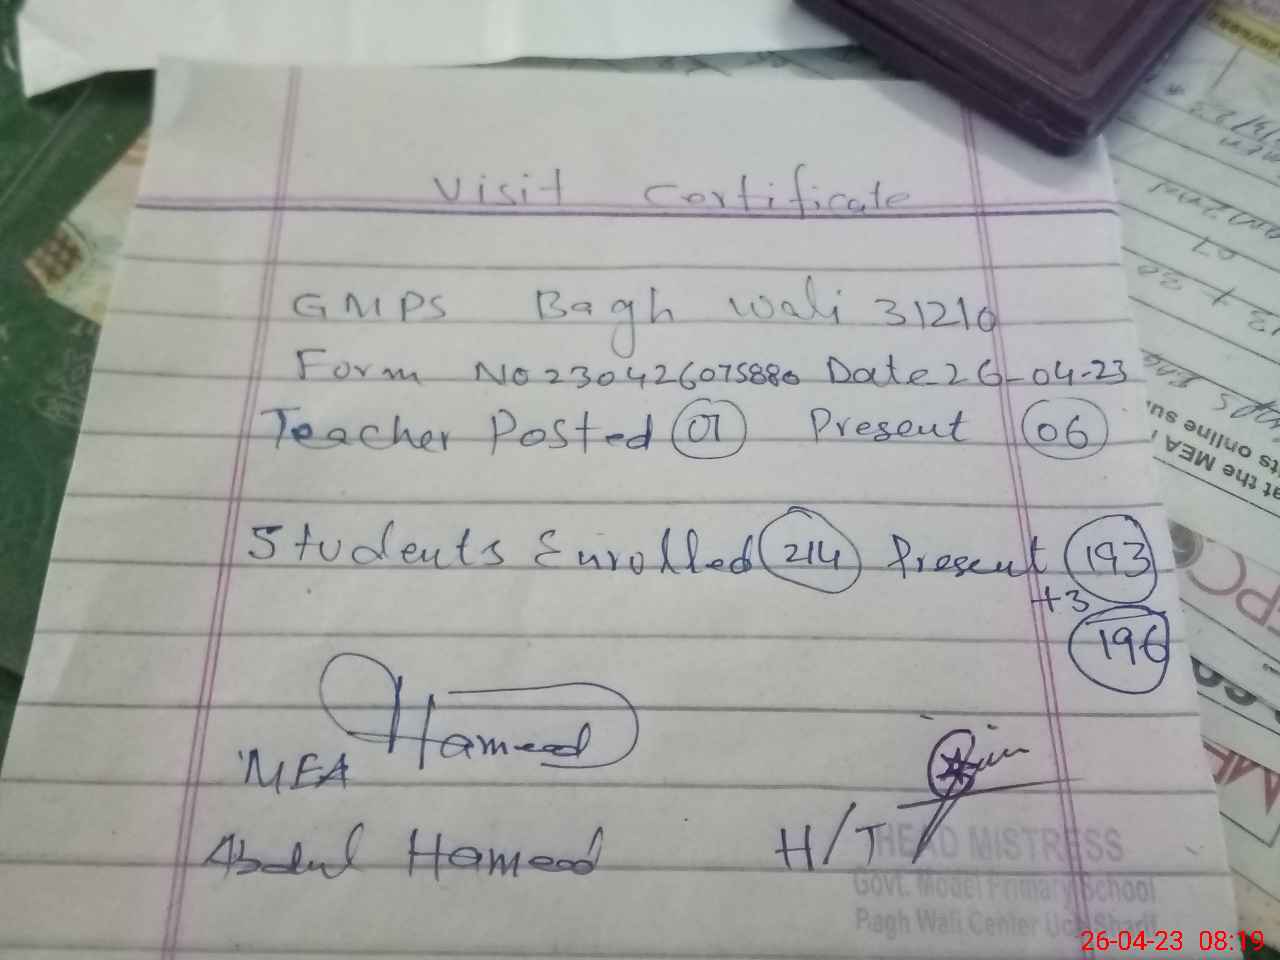 Visit Certificate
GMPS Bagh Wali 31210
Form No 230426075880 Date 26-04-23
Teacher Posted 07 Present 06
Students Enrolled 214 Present 193
+3
196
Hameed
MEA
Abdul Hameed
H/T
HEAD MISTRESS
Govt. Model Primary School
Bagh Wali Center Uch Sharif
26-04-23 08:19
at the MEA
ts online su
PC